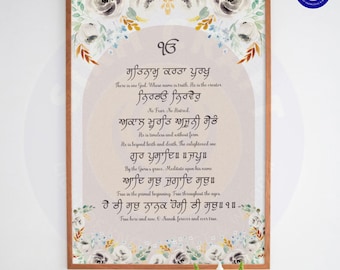 ੴ
ਸਤਿਨਾਮੁ ਕਰਤਾ ਪੁਰਖੁ
There is one God. Whose name is truth. He is the creator.
ਨਿਰਭਉ ਨਿਰਵੈਰੁ
No Fear, No Hatred.
ਅਕਾਲ ਮੂਰਤਿ ਅਜੂਨੀ ਸੈਭੰ
He is timeless and without form.
He is beyond birth and death. The enlightened one
ਗੁਰ ਪ੍ਰਸਾਦਿ॥ ॥ਜਪੁ॥
By the Gurus grace. Meditate upon his name.
ਆਦਿ ਸਚੁ ਜੁਗਾਦਿ ਸਚੁ॥
True in the primal beginning. True throughout the ages.
ਹੈ ਭੀ ਸਚੁ ਨਾਨਕ ਹੋਸੀ ਭੀ ਸਚੁ॥੧॥
True here and now, O Nanak forever and ever true.